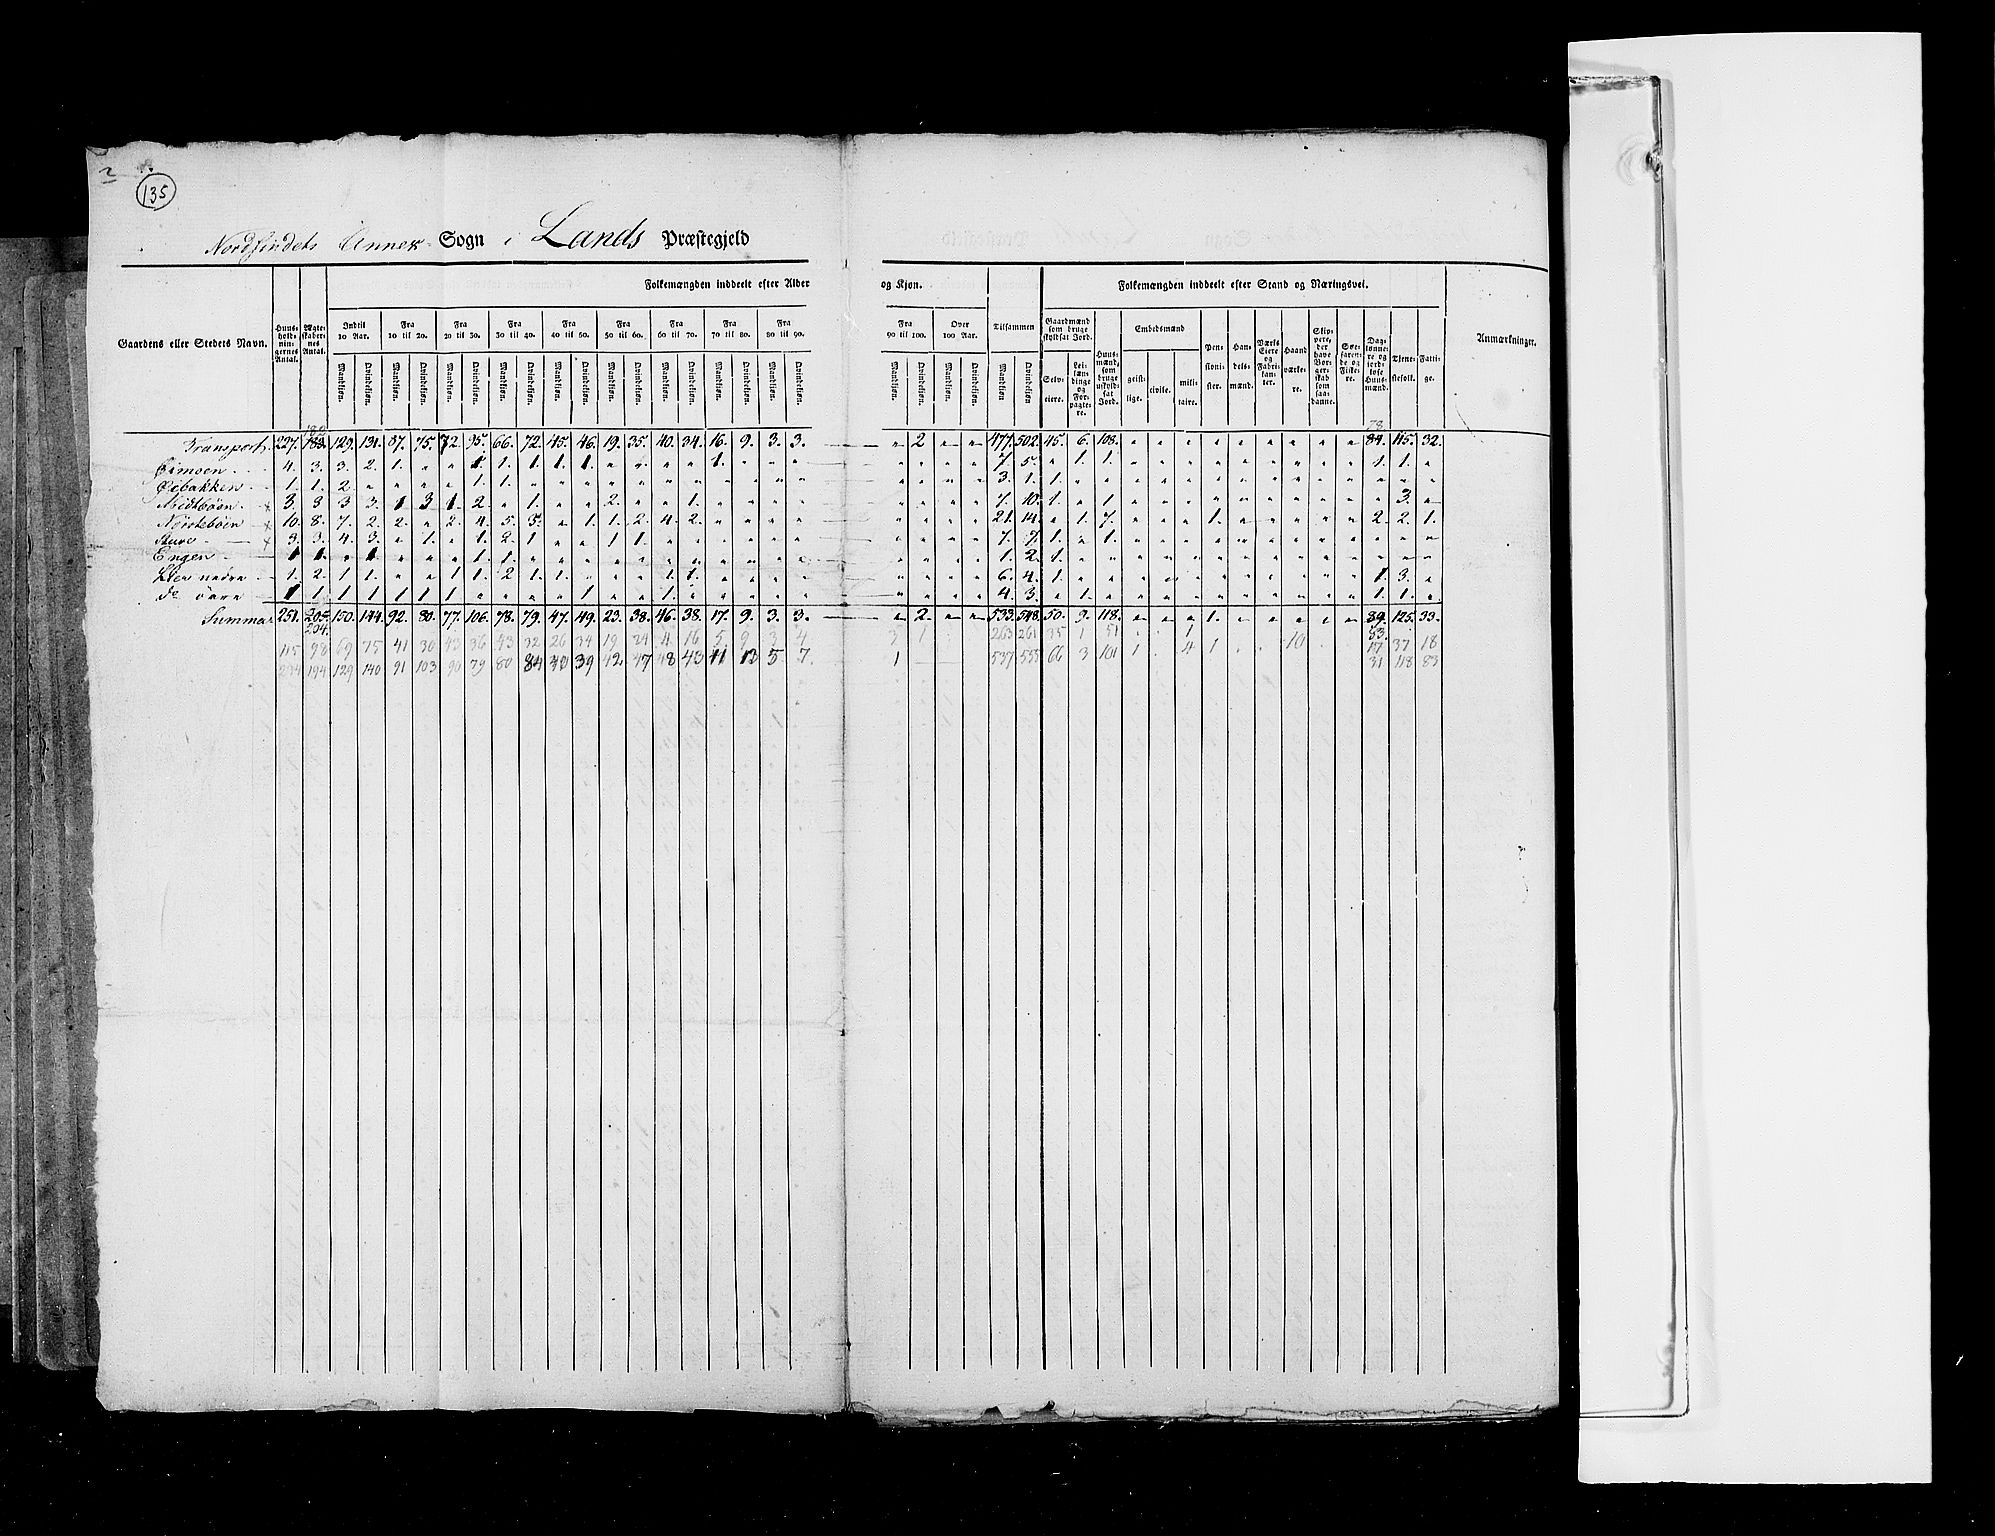 135
Nordsindets Annex Sogn i Lands Præstegjeld
Folkemængden inddeelt efter Alder og Kjøn. Folkemængden inddeelt efter Stand og Næringsvei.
Gaardens eller Stedets Navn. Huusholdningernes Antal. Ægteskabernes Antal. Indtil 10 Aar. Fra 10 til 20. Fra 20 til 30. Fra 30 til 40. Fra 40 til 50. Fra 50 til 60. Fra 60 til 70. Fra 70 til 80. Fra 80 til 90. Fra 90 til 100. Over 100 Aar. Tilsammen Gaardmænd som bruge skyldsat Jord. Huusmænd, som bruge uskyldsat Jord. Embedsmænd Pensionister. Handelsmænd. Værks Eiere og Fabrikanter. Haandværkere. Skippere, der have Borgerskab som saadanne. Søefarende og Fiskere. Daglønnere og jordløse Huusmænd. Tjenestefolk. Fattige. Anmærkninger.
Mandkjøn. Qvindekjøn. Mandkjøn. Qvindekjøn. Mandkjøn. Qvindekjøn. Mandkjøn. Qvindekjøn. Mandkjøn. Qvindekjøn. Mandkjøn. Qvindekjøn. Mandkjøn. Qvindekjøn. Mandkjøn. Qvindekjøn. Mandkjøn. Qvindekjøn. Mandkjøn. Qvindekjøn. Mandkjøn. Qvindekjøn. Mandkjøn Qvindekjøn. Selveiere. Leilændinge og Forpagtere. geistlige. civile. militaire.
78.
Transport. 227. 183. 129. 131. 87. 75. 72. 95. 66. 72. 45. 46. 19. 35. 40. 34. 16. 9. 3. 3. " 2 " " 477. 502. 45. 6. 108. " " " " " " " " " " 84. 115. 32.
4. 3. 3. 2. 1. " " 1. 1. 1. 1. 1. " " " " 1. " " " " " " " 7. 5. " 1. 1. " " " " " " " " " " 1. 1. "
1. 1. 2. " " " " 1. 1. " " " " " " " " " " " " " " " 3. 1. 1. " " " " " " " " " " " " " " "
Midtbøen 3. 3 3 3. 1 3 1. 2. " 1. " " 2. " " 1. " " " " " " " " 7. 10. 1. " 1 " " " " " " " " " " " 3. "
Nørstebøen 10. 8. 7. 2. 2. " 2. 4. 5. 3. " 1. 1. 2. 4. 2. " " " " " " " " 21. 14. " 1. 7. " " " 1. " " " " " " 2. 2. 1.
3. 3. 4. 3. " 1. " 1. 2. 1 " " 1 1. " " " " " " " " " " 7. 7. 1. " 1. " " " " " " " " " " " " "
Engen 1 1. " 1. " " " 1. 1. " " " " " " " " " " " " " " " 1. 2. 1. " " " " " " " " " " " " " " "
nedre 1. 2. 1 1. " " 1 1. 2 1. 1. " " " 1. 1. " " " " " " " " 6. 4. 1. " " " " " " " " " " " " 1. 3. "
do øvre 1 1. 1 1. 1. 1 1. " " " 1. " " " 1. " " " " " " " " " 4. 3. " 1. 1. " " " " " " " " " " 1. 1. "
Summa 251. 205. 150. 144. 92. 80. 77. 106. 78. 79. 47. 49. 23. 38. 46. 38. 17. 9. 3. 3. " 2. " " 533. 548. 50. 9. 118. " " " 1. " " " " " " 89. 125. 33.
204. 83.
115 98 69 75 41 30 43 36 43 32 26 34 19 24 4 16 5 9 3 4 3 1 263 261 35 1 51 1 10 117 37 18
194 129 140 91 103 90 79 80 84 39 42 47 48 43 11 13 5 7. 1 537 555 66 3 101 1 4 1 31 118 83